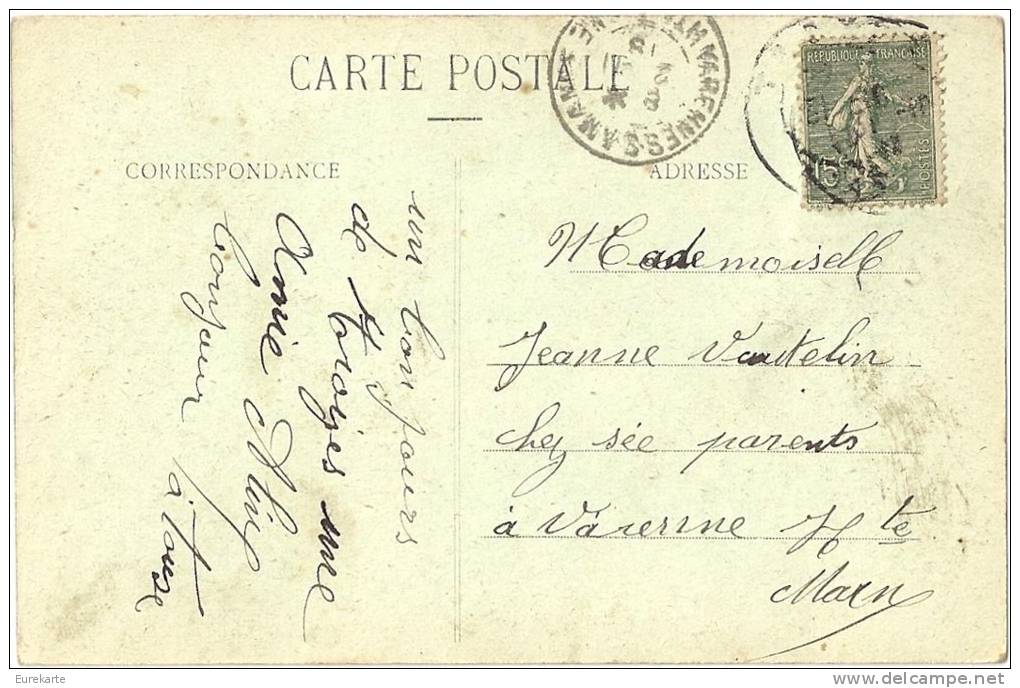 CARTE POSTALE
CORRESPONDANCE
ADRESSE
VARENNES-S-AMANCE
REPUBLIQUE FRANÇAISE
15
POSTES
un bon jours
de troyes une
Amie
bonjour à touse
Mademoiselle
Jeanne Vautelin
chez sée parents
à Varenne Hte
Marn
Eurekarte
delcampe.net